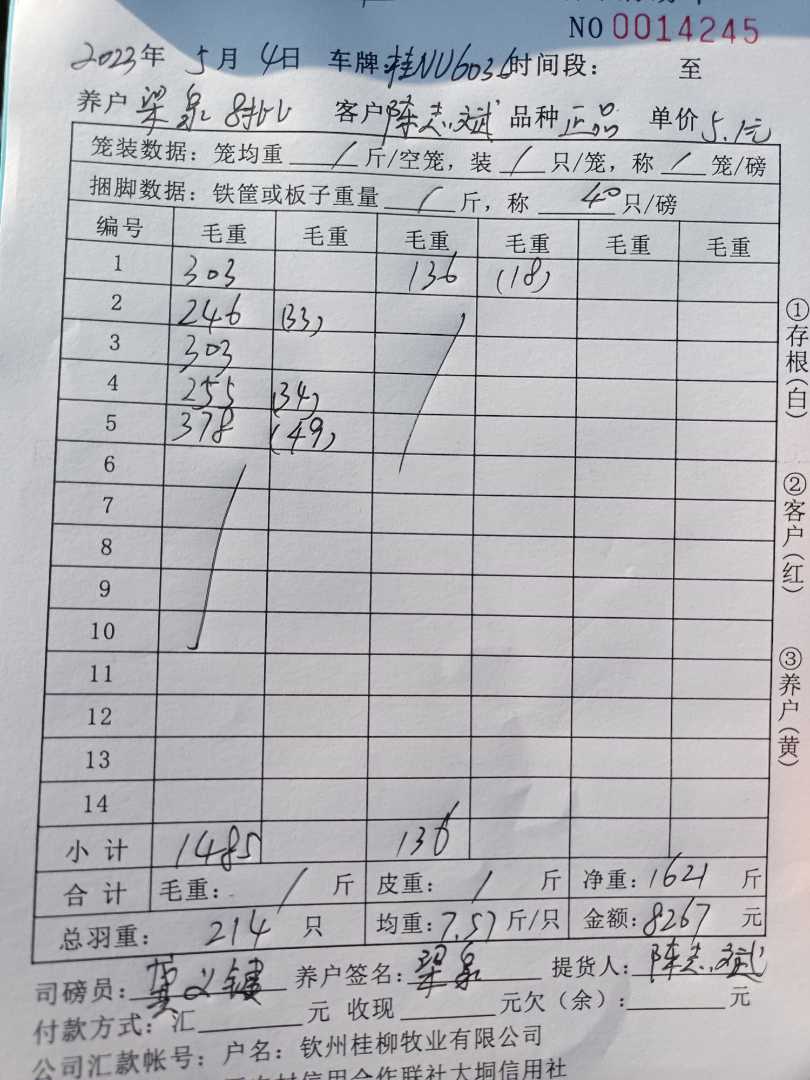 NO 0014245
2023年 5月 4日 车牌:桂NU6036时间段: 至
养户 梁泉 客户 陈志斌 品种 正品 单价 5.1元
笼装数据: 笼均重 / 斤/空笼, 装 / 只/笼, 称 / 笼/磅
捆脚数据: 铁筐或板子重量 / 斤, 称 40 只/磅
编号 毛重 毛重 毛重 毛重 毛重 毛重
1 303 136 (18)
2 246 (33)
3 303
4 255 (34)
5 378 (49)
6
7
8
9
10
11
12
13
14
小计 1485 136
合计 毛重: / 斤 皮重: / 斤 净重: 1621 斤
总羽重: 214 只 均重: 7.57 斤/只 金额: 8267 元
司磅员: 养户签名: 梁泉 提货人: 陈志斌
付款方式: 汇 元 收现 元欠(余): 元
公司汇款帐号: 户名: 钦州桂柳牧业有限公司
农村信用合作联社大垌信用社
①存根(白)
②客户(红)
③养户(黄)